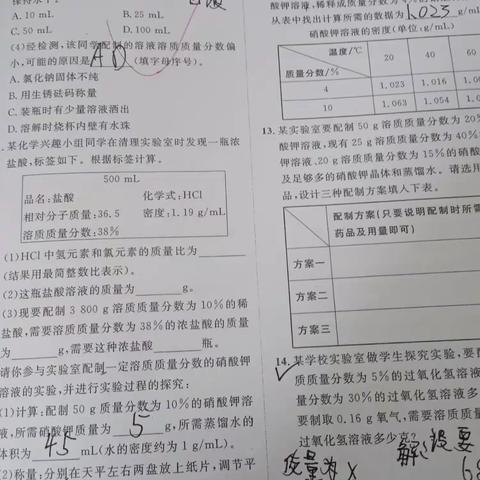 A. 10 mL B. 25 mL
C. 50 mL D. 100 mL
(4)经检测,该同学配制的溶液溶质质量分数偏
小,可能的原因是 AD (填字母序号)。
A. 氯化钠固体不纯
B. 用生锈砝码称量
C. 装瓶时有少量溶液洒出
D. 溶解时烧杯内壁有水珠
某化学兴趣小组同学在清理实验室时发现一瓶浓
盐酸,标签如下。根据标签计算。
500 mL
品名:盐酸 化学式:HCl
相对分子质量:36.5 密度:1.19 g/mL
溶质质量分数:38%
(1)HCl 中氢元素和氯元素的质量比为
(结果用最简整数比表示)。
(2)这瓶盐酸溶液的质量为 g。
(3)现要配制 3 800 g 溶质质量分数为 10%的稀
盐酸,需要溶质质量分数为 38%的浓盐酸的质量
为 g,需要这种浓盐酸 瓶。
请你参与实验室配制一定溶质质量分数的硝酸钾
溶液的实验,并进行实验过程的探究:
(1)计算:配制 50 g 质量分数为 10%的硝酸钾溶
液,所需硝酸钾质量为 5 g,所需蒸馏水的
体积为 45 mL(水的密度约为 1 g/mL)。
(2)称量:分别在天平左右两盘放上纸片,调节平
从表中找出计算所需的数据为 1.023 g/mL
硝酸钾溶液的密度(单位:g/mL)
温度/℃ 20 40
质量分数/%
4 1.023 1.016 1.00
10 1.063 1.054 1.0
13. 某实验室要配制 50 g 溶质质量分数为 20%
酸钾溶液,现有 25 g 溶质质量分数为 40%
钾溶液、20 g 溶质质量分数为 15%的硝酸
及足够多的硝酸钾晶体和蒸馏水。请选用
品,设计三种配制方案填入下表。
配制方案(只要说明配制时所需
药品及用量即可)
方案一
方案二
方案三
14. 某学校实验室做学生探究实验,要
质质量分数为 5%的过氧化氢溶液
量分数为 30%的过氧化氢溶液多
要制取 0.16 g 氧气,需要溶质质量
过氧化氢溶液多少克?
解:设要
质量为 x